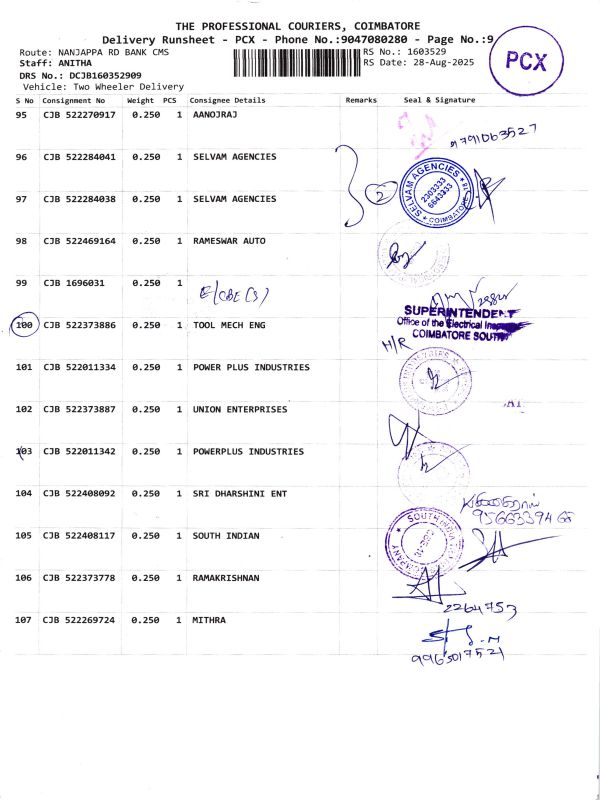 THE PROFESSIONAL COURIERS, COIMBATORE
Delivery Runsheet - PCX - Phone No.:9047080280 - Page No.:9
PCX
Route: NANJAPPA RD BANK CMS
RS No.: 1603529
Staff: ANITHA
RS Date: 28-Aug-2025
DRS No.: DCJB160352909
Vehicle: Two Wheeler Delivery
S No Consignment No Weight PCS Consignee Details Remarks Seal & Signature
95 CJB 522270917 0.250 1 AANOJRAJ
9791063527
96 CJB 522284041 0.250 1 SELVAM AGENCIES
2
SELVAM AGENCIES
2303333
6643333
COIMBATORE
97 CJB 522284038 0.250 1 SELVAM AGENCIES
98 CJB 522469164 0.250 1 RAMESWAR AUTO
99 CJB 1696031 0.250 1
E/CBE(S)
SUPERINTENDENT
Office of the Electrical
COIMBATORE SOUTH
100 CJB 522373886 0.250 1 TOOL MECH ENG
H/R
101 CJB 522011334 0.250 1 POWER PLUS INDUSTRIES
102 CJB 522373887 0.250 1 UNION ENTERPRISES
103 CJB 522011342 0.250 1 POWERPLUS INDUSTRIES
104 CJB 522408092 0.250 1 SRI DHARSHINI ENT
105 CJB 522408117 0.250 1 SOUTH INDIAN
SOUTH INDIA
COMPANY
106 CJB 522373778 0.250 1 RAMAKRISHNAN
2264753
107 CJB 522269724 0.250 1 MITHRA
9965017521